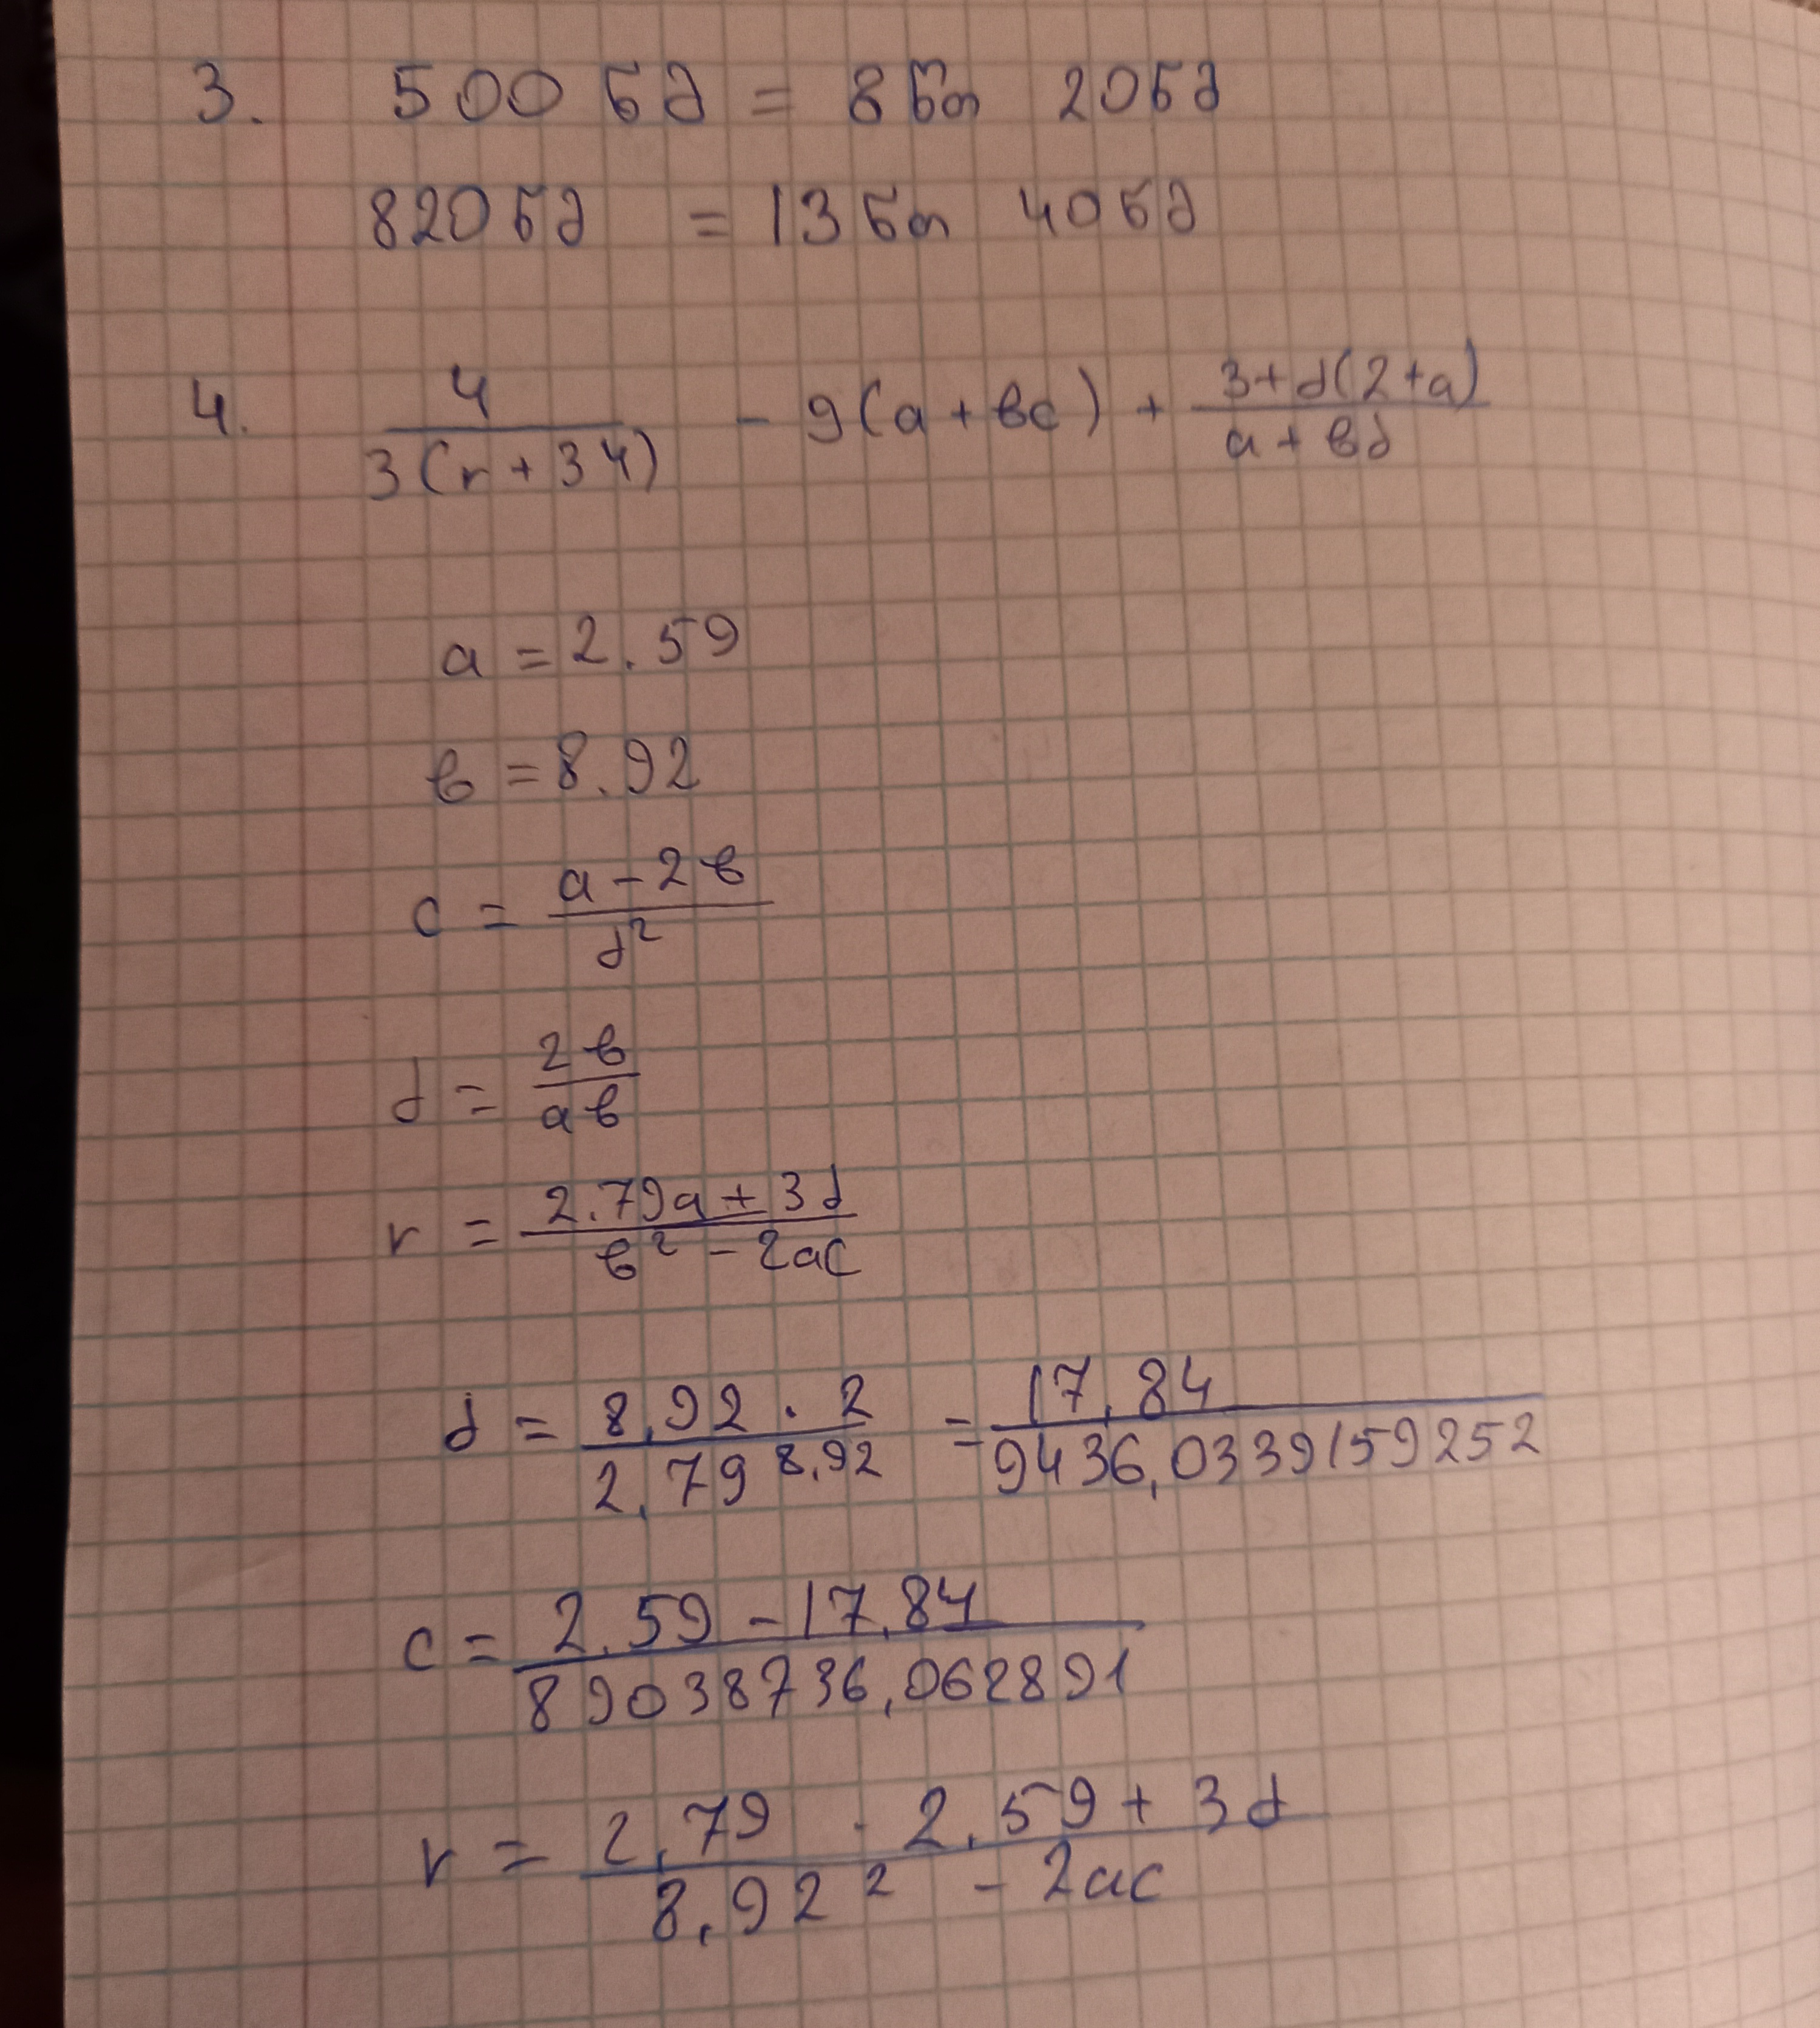 3. 500 წმ = 8 წთ 20 წმ
820 წმ = 13 წთ 40 წმ
4. 4/(3(r+34)) - 9(a+bc) + (3+d(2+a))/(a+bd)
a = 2.59
b = 8.92
c = (a-2b)/d²
d = 2b/ab
r = (2.79a+3d)/(b²-2ac)
d = (8,92 · 2)/(2,79^8,92) = 17,84/9436,0339159252
c = (2.59-17,84)/89038736,062891
r = (2,79 · 2,59+3d)/(8,92²-2ac)